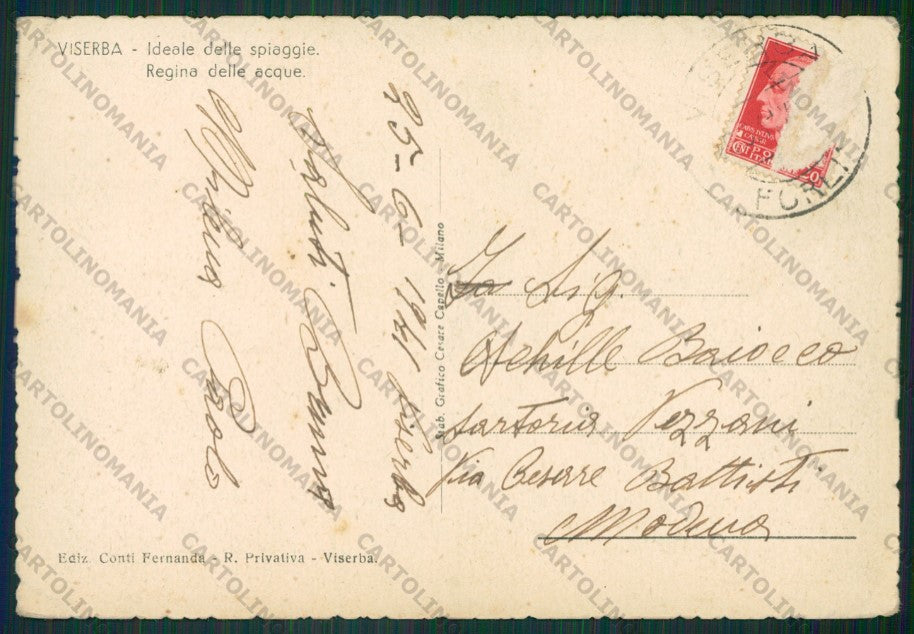 VISERBA - Ideale delle spiaggie.
Regina delle acque.
25-6-1941 Viserba
Saluti
Paolo
Stab. Grafico Cesare Capello - Milano
CENT
FORLI
Sig.
Achille Baiocco
Sartoria Vezzani
Via Cesare Battisti
Modena
Ediz. Conti Fernanda - R. Privativa - Viserba.
CARTOLINOMANIA